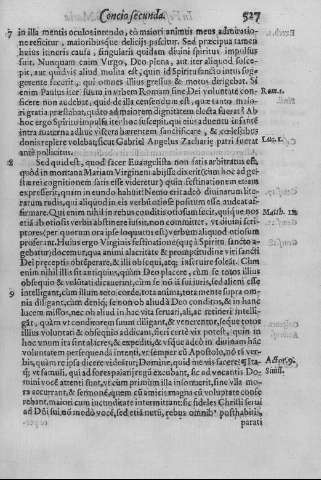 Concio secunda. 527
7 in illa mentis oculos intendo, eò maiori animus meus admiratio-
ne reficitur, maioribusque delicijs pascitur. Sed præcipua tamen
huius itineris causa, singularis quidam diuini spiritus impulsus
fuit. Nunquam enim Virgo, Deo plena, aut iter aliquod susce-
pit, aut quiduis aliud molita est, quin id Spiritu sancto intus sug-
gerente fecerit, qui omnes illius gressus & motus dirigebat. Si
enim Paulus iter suum in vrbem Romam sine Dei voluntate con- Rom. 1.
ficere non audebat, quid de illa censendum est, quæ tanto maio-
ri gratia præstabat, quāto ad maiorem dignitatem electa fuerat? A
hoc ergo Spiritus impulsu iter hoc suscepit, qui eius aduentu infantē
intra materna adhuc viscera hærentem sanctificare, & cœlestibus
donis replere volebat, sicut Gabriel Angelus Zachariæ patri fuerat Luc. 1.
antè pollicitus.
8 Sed quid est, quod sacer Euangelista non satis arbitratus est,
quòd in montana Mariam Virginem abijsse dixerit (cum hoc ad ge-
stæ rei cognitionem satis esse videretur) quin festinationem etiam
expresserit, quam in eundo habuit? Nemo erit adeò diuinarum lite-
rarum rudis, qui aliquod in eis verbū otiose positum esse audeat af-
firmare. Qui enim nihil in rebus conditis otiosum fecit, quique nos Matth. 12.
etiā ab otiosis verbis abstinere iussit, non committet, vt diuini scri-
ptores (per quorum ora ipse loquutus est) verbum aliquod otiosum
proferant. Huius ergo Virginis festinatione (quæ à Spiritu sancto a-
gebatur) docemur, qua animi alacritate & promptitudine viri sancti
Dei præceptis obsequi, eique inseruire soleāt. Cùm
enim nihil illis sit antiquius, quàm Deo placere, cùm se totos illius
obsequio & volūtati dicauerint, cùm se nō iā sui iuris, sed alieni esse
9 intelligant, cùm illum neto corde, tota anima, tota mente supra om-
nia diligant, cùm deniq; se non ob aliud à Deo conditos, & in hanc
lucem missos, nec ob aliud in hac vita seruari, ali, ac retineri intelli-
gāt, quàm vt conditorem suum diligant, & venerentur, seque totos
illius voluntati & obsequio addicant, fieri certè vix potest, quin in
hoc vnum ita sint alacres, & expediti, & vsque adeò in diuinam hāc
voluntatem persequendā intenti, vt semper cū Apostolo, nō tā ver-
bis, quàm re ipsa dicere videātur; Domine, quid me vis facere? Ita- Actor. 9.
q; vt famuli, qui ad fores palatij regū excubant, sic ad vocantis Do- Simil.
mini vocē attenti sunt, vt cùm primùm illa insonuerit, sine vlla mo-
ra accurrant, & sermonē, quem cū amicis magna cū voluptate conse
rebant, maiori cum iucunditate intermittant: sic fideles Christi serui
ad Dñi sui nō modò vocē, sed etiā nutū, rebus omnib⁹ posthabitis,
parati